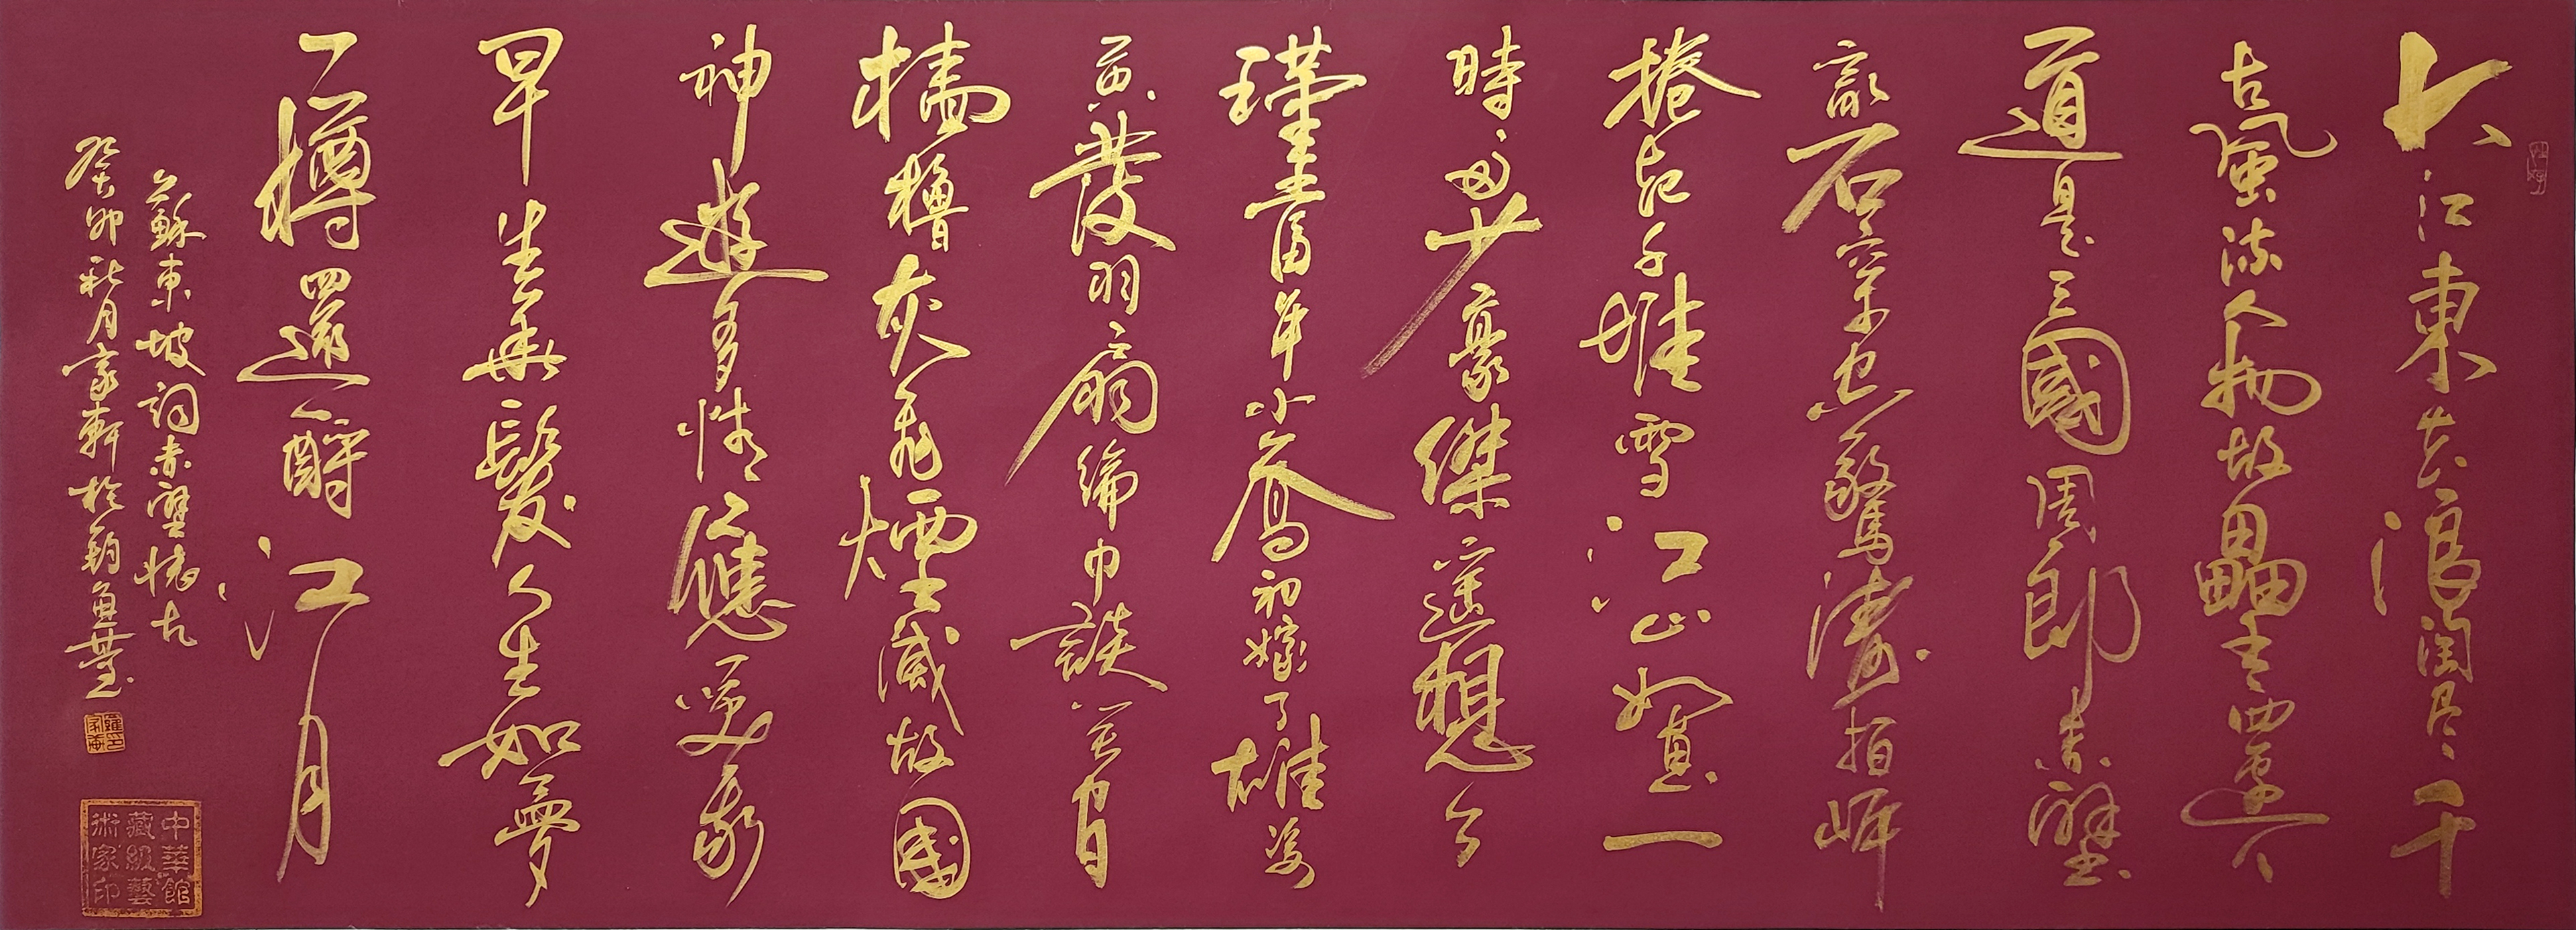 大江東去浪淘尽千
古風流人物故壘西邊人
道是三國周郎赤壁
亂石穿空驚濤拍岸
捲起千堆雪江山如畫一
時多少豪傑遙想公
瑾當年小喬初嫁了雄姿
英發羽扇綸巾談笑間
檣櫓灰飛煙滅故國
神遊多情應笑我
早生華髮人生如夢
一樽還酹江月
蘇東坡詞赤壁懷古
癸卯秋月豪軒於釣魚臺
中華館
藏級藝
術家印